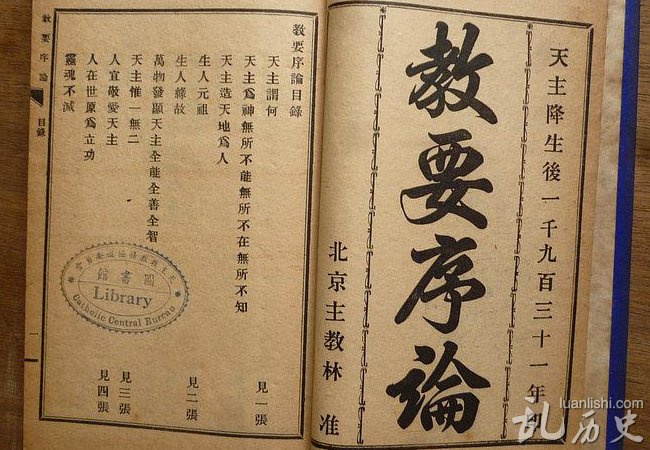 天主降生後一千九百三十一年
教要序論
北京主教林 准
教要序論目錄
天主謂何
天主爲神無所不能無所不在無所不知
見一張
天主造天地爲人
生人元祖
見二張
生人緣故
萬物發顯天主全能全善全智
天主惟一無二
見三張
人宜敬愛天主
見四張
人在世原爲立功
靈魂不滅
教要序論
目錄
一
圖書館
Library
Catholic Central Bureau
luanlishi.com
乱历史